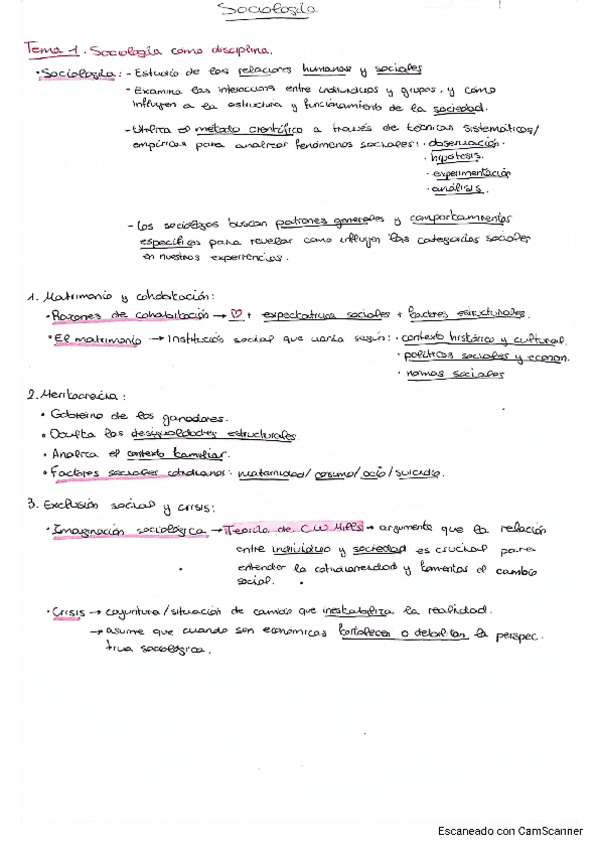 Sociología
Tema 1. Sociología como disciplina.
• Sociología: - Estudio de las relaciones humanas y sociales
- Examina las interacciones entre individuos y grupos, y como
influyen a la estructura y funcionamiento de la sociedad.
- Utiliza el método científico a través de técnicas sistemáticas/
empíricas para analizar fenómenos sociales: · observación.
· hipótesis.
· experimentación
· análisis.
- Los sociólogos buscan patrones generales y comportamientos
específicos para revelar como influyen las categorías sociales
en nuestras experiencias.
1. Matrimonio y cohabitación:
• Razones de cohabitación → ♡ + expectativas sociales + factores estructurales.
• El matrimonio → Institución social que varía según: · contexto histórico y cultural.
· políticas sociales y econom.
· normas sociales
2. Meritocracia:
• Gobierno de los ganadores.
• Oculta las desigualdades estructurales
• Analiza el contexto familiar.
• Factores sociales cotidianos: maternidad/consumo/ocio/suicidio.
3. Exclusión social y crisis:
• Imaginación sociológica → Teoría de C.W Mills → argumenta que la relación
entre individuo y sociedad es crucial para
entender la cotidianeidad y fomentar el cambio
social.
• Crisis → coyuntura/situación de cambio que inestabiliza la realidad.
→ asume que cuando son económicas fortalecen o debilitan la perspec-
tiva sociológica.
Escaneado con CamScanner